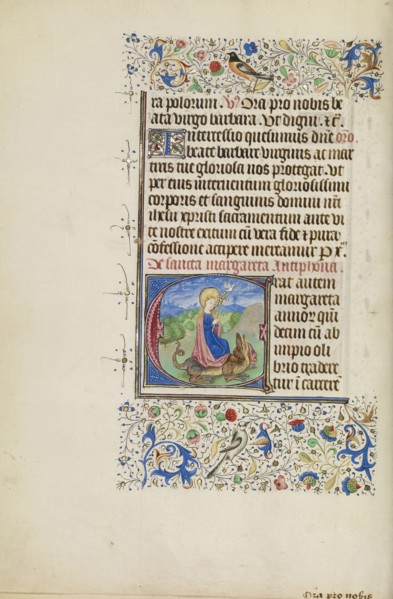 ra polorum. V Ora pro nobis be
ata virgo barbara. Vt digni. &c̄.
Intercessio quesumus dn̄e oro.
beate barbare virginis ac mar
tiris tue gloriosa nos protegat. Vt
per eius interventum gloriosissimi
corporis et sanguinis domini nr̄i
ihū xpristi sacramentum ante vi
te nostre exitum cū vera fide & pura
cōfessione accipere mereamur p x̄
De sancta margareta Antiphona.
Erat autem
margareta
annor̄ quī
decim cū ab
impio oli
brio tradere
tur ī carcerē
Ora pro nobis